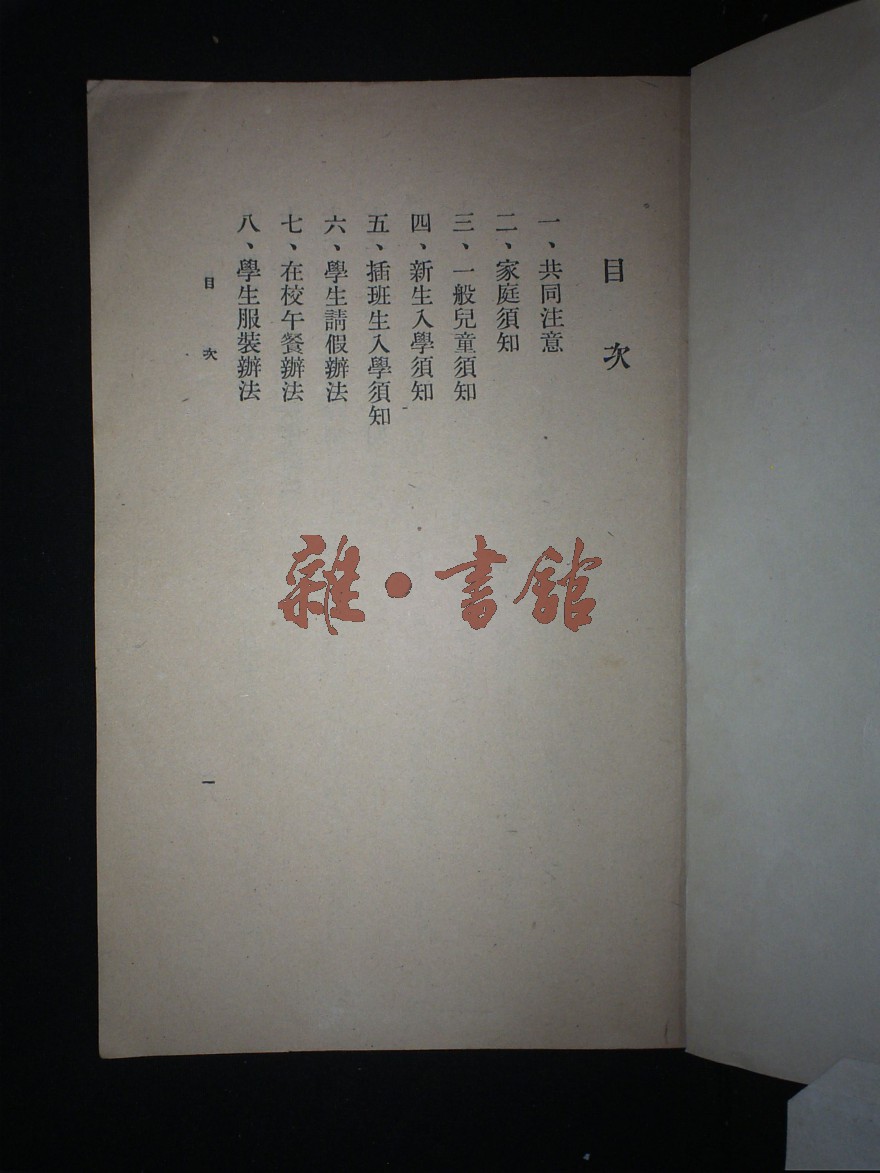 目次
一、共同注意
二、家庭須知
三、一般兒童須知
四、新生入學須知
五、插班生入學須知
六、學生請假辦法
七、在校午餐辦法
八、學生服裝辦法
目次
一
雜·書館